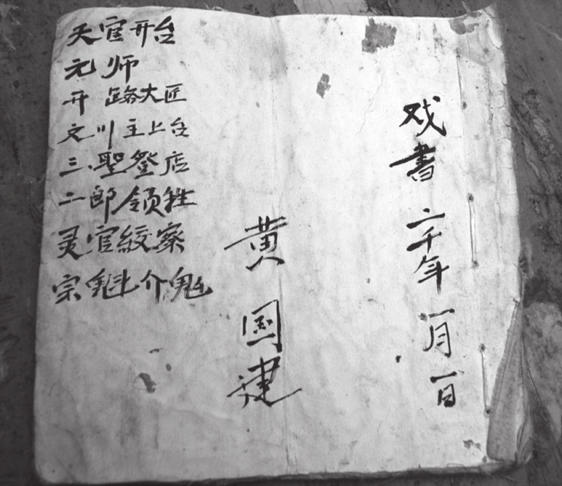 戏書 二千年 一月一日
黄国建
天官开台
元师
开路大匠
文川主上台
三聖登店
二郎领牲
灵官絞寨
宗魁介鬼